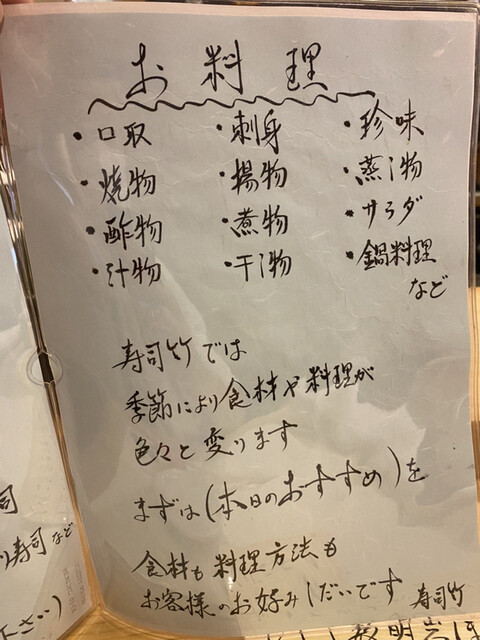 お料理
・口取 ・刺身 ・珍味
・焼物 ・揚物 ・蒸し物
・酢物 ・煮物 ・サラダ
・汁物 ・干し物 ・鍋料理
など
寿司竹では
季節により食材や料理が
色々と変ります
まずは(本日のおすすめ)を
食材も料理方法も
お客様のお好みしだいです 寿司竹
司
り寿司など
下さい)